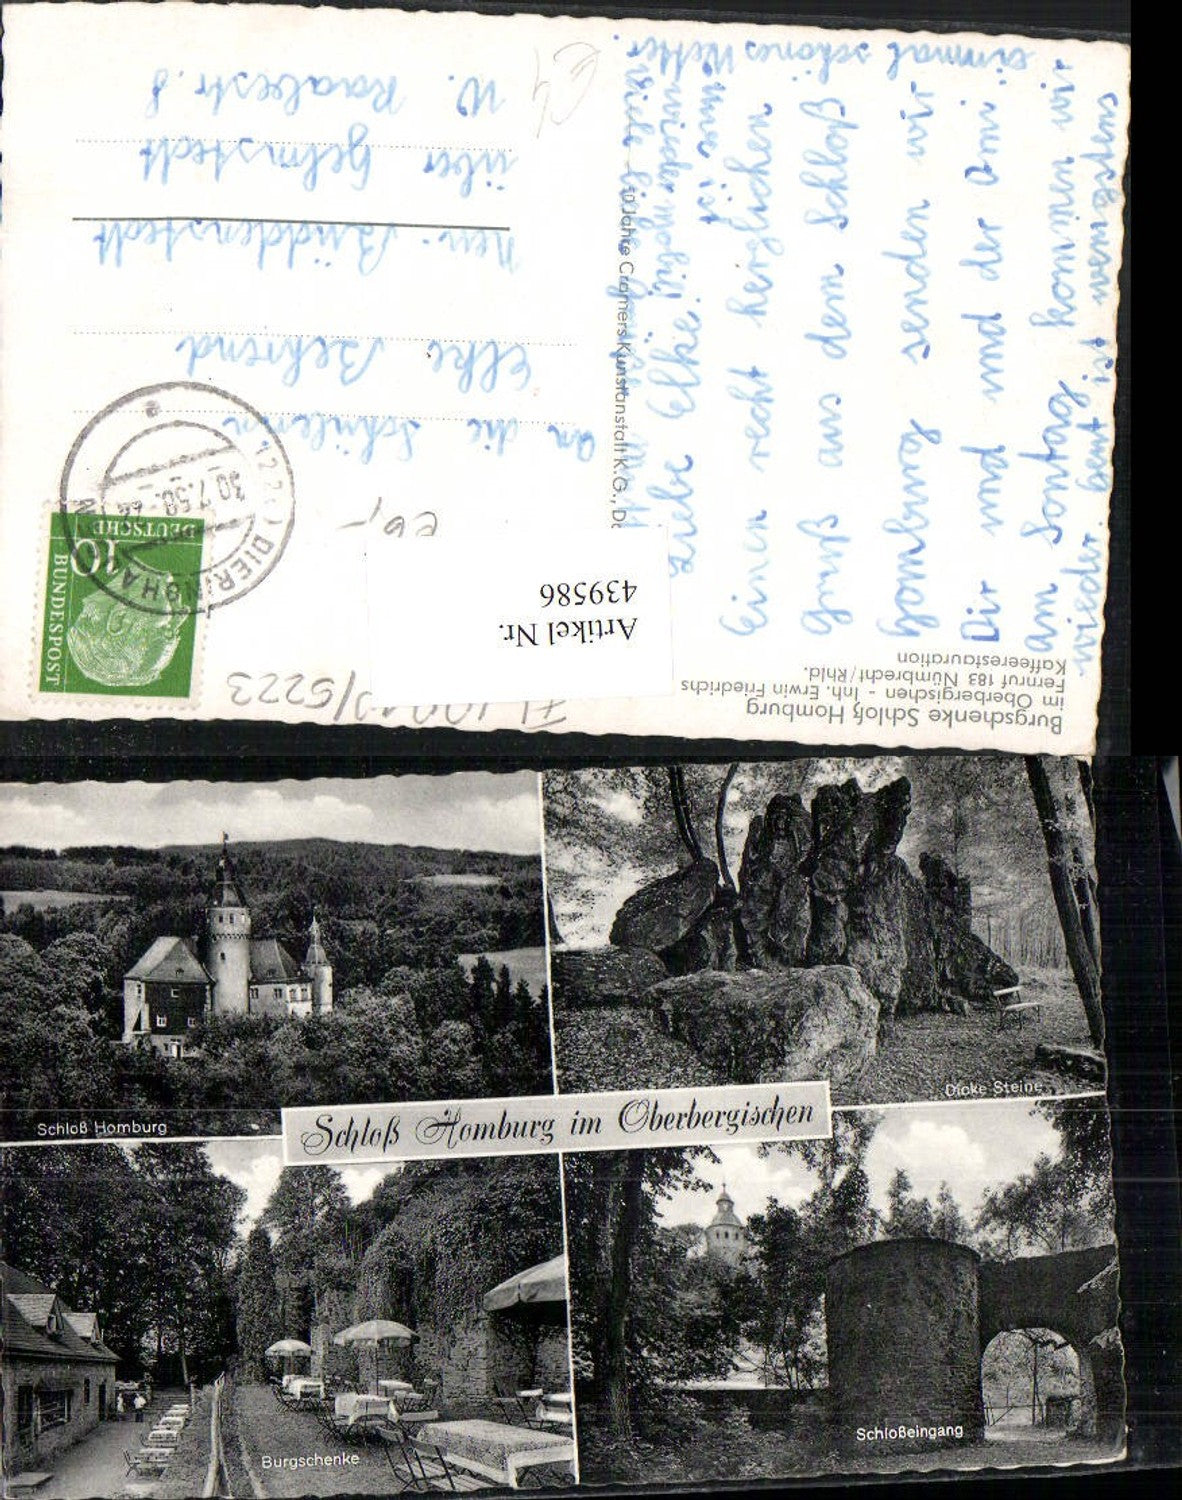 Burgschenke Schloß Homburg
im Oberbergischen - Inh. Erwin Friedrichs
Fernruf 183 Nümbrecht/Rhld.
Kaffeerestauration
Liebe Elke!
Einen recht herzlichen
Gruß aus dem Schloß
Homburg senden wir
Dir und und der Omi.
Am Sontag kommen wir
wieder. Heut ist
einmal schönes Wetter.
Viele
50 Jahre Cramers Kunstanstalt K.G., Do
An die Schülerin
Elke Behrend
Neu-Büddenstedt
über Helmstedt
W. Raabestr. 8
DIERINGHA
30.7.58
DEUTSCHE
BUNDESPOST
10
Artikel Nr.
439586
/5223
Schloß Homburg
Dicke Steine
Schloß Homburg im Oberbergischen
Burgschenke
Schloßeingang